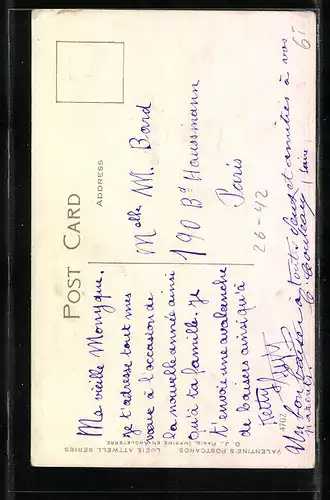 POST CARD
ADDRESS
Ma vieille Monyque.
je t'adresse tout mes
vœux à l'occasion de
la nouvelle année ainsi
qu'à ta famille. Je
t'envoie une avalanche
de baisers ainsi qu'à
Melle M. Bard
190 Bd Haussmann
Paris
26-42
Un bon baiser à toutes deux et amitiés à vos
parents
65
4702
VALENTINE'S POSTCARDS LUCIE ATTWELL SERIES
PARIS, IMPRIMÉ EN ANGLETERRE